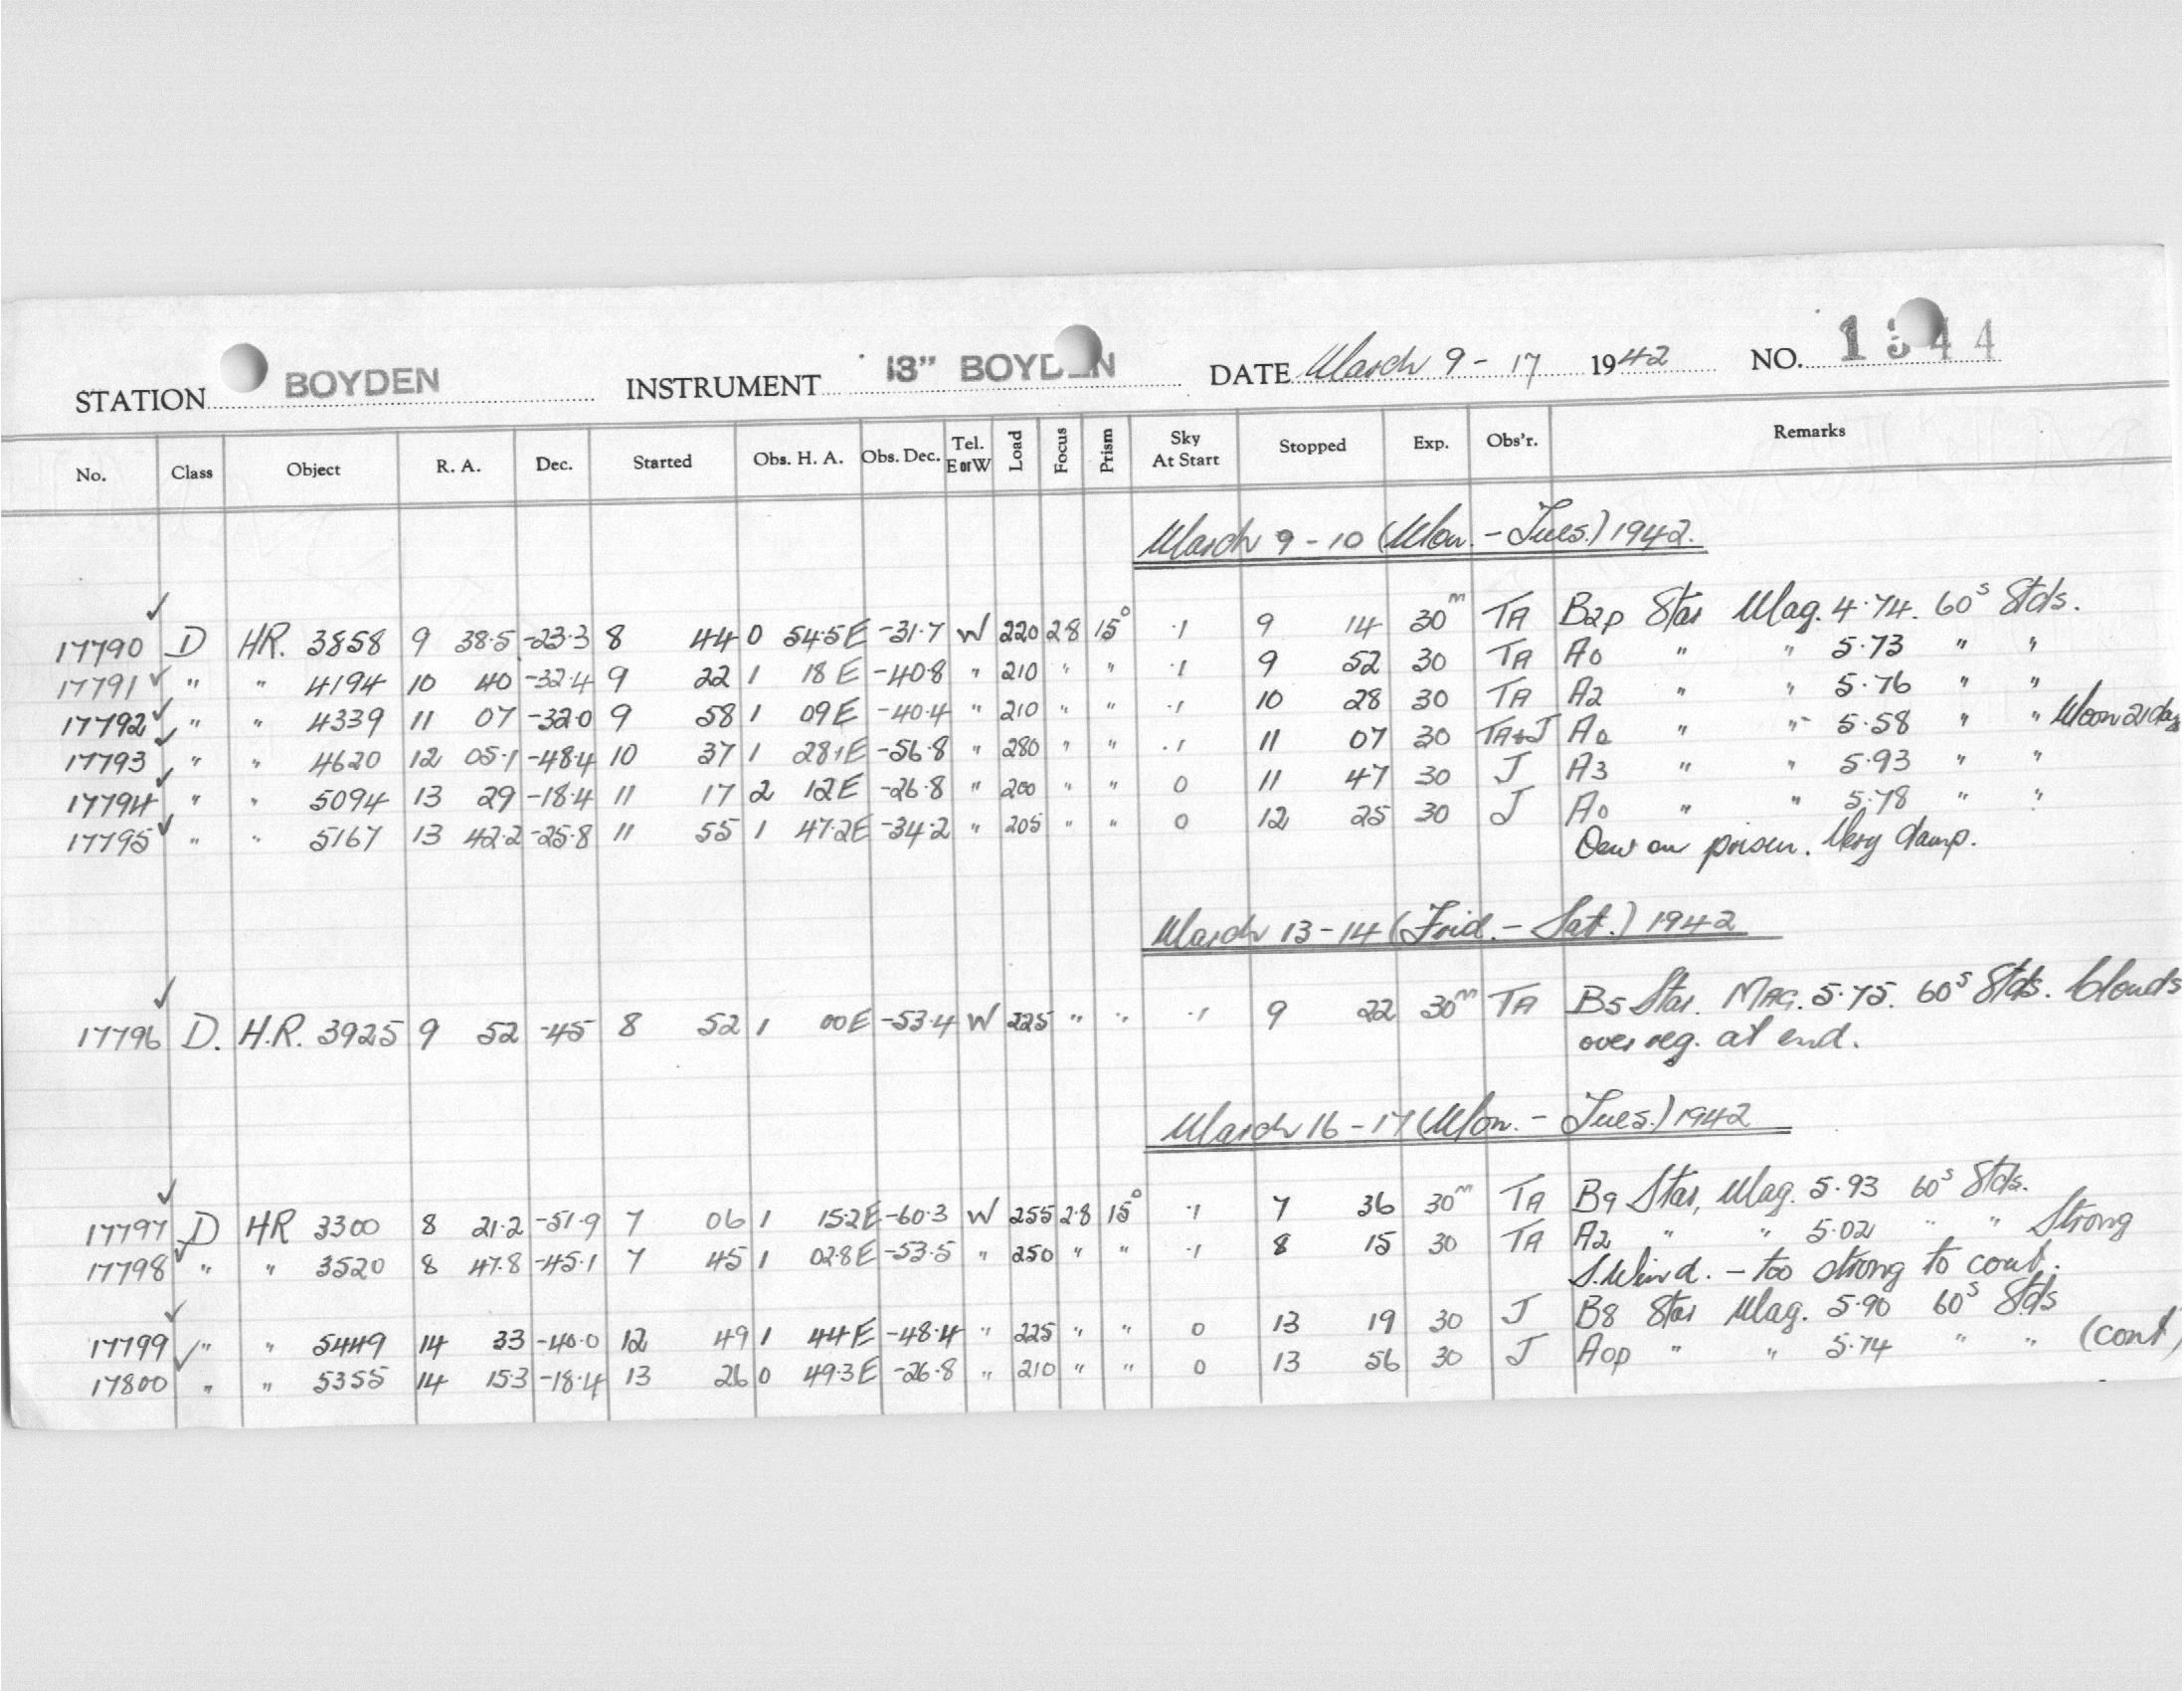 STATION BOYDEN INSTRUMENT 13" BOYDEN DATE March 9 - 17 1942 NO. 1344
No. Class Object R. A. Dec. Started Obs. H. A. Obs. Dec. Tel. E or W Load Focus Prism Sky At Start Stopped Exp. Obs'r. Remarks
March 9 - 10 (Mon. - Tues.) 1942.
17790 D HR. 3858 9 38.5 -23.3 8 44 0 54.5E -31.7 W 220 28 15° .1 9 14 30m TA B2p Star Mag. 4.74. 60s Stds.
17791 " " 4194 10 40 -32.4 9 22 1 18E -40.8 " 210 " " .1 9 52 30 TA A0 " " 5.73 " "
17792 " " 4339 11 07 -32.0 9 58 1 09E -40.4 " 210 " " .1 10 28 30 TA A2 " " 5.76 " "
17793 " " 4620 12 05.1 -48.4 10 37 1 28.1E -56.8 " 280 " " .1 11 07 30 TA&J A0 " " 5.58 " " Moon 21 day
17794 " " 5094 13 29 -18.4 11 17 2 12E -26.8 " 200 " " 0 11 47 30 J A3 " " 5.93 " "
17795 " " 5167 13 42.2 -25.8 11 55 1 47.2E -34.2 " 205 " " 0 12 25 30 J A0 " " 5.78 " "
Dew on prism. Very damp.
March 13 - 14 (Frid. - Sat.) 1942
17796 D. H.R. 3925 9 52 -45 8 52 1 00E -53.4 W 225 " " .1 9 22 30m TA B5 Star. MAG. 5.75. 60s Stds. Clouds
over reg. at end.
March 16 - 17 (Mon. - Tues.) 1942
17797 D HR 3300 8 21.2 -51.9 7 06 1 15.2E -60.3 W 255 28 15° .1 7 36 30m TA B9 Star, Mag. 5.93 60s Stds.
17798 " " 3520 8 47.8 -45.1 7 45 1 02.8E -53.5 " 250 " " .1 8 15 30 TA A2 " " 5.02 " " Strong
S. Wind. - too strong to cont.
17799 " " 5449 14 33 -40.0 12 49 1 44E -48.4 " 225 " " 0 13 19 30 J B8 Star Mag. 5.90 60s Stds
17800 " " 5355 14 15.3 -18.4 13 26 0 49.3E -26.8 " 210 " " 0 13 56 30 J A0p " " 5.74 " " (cont)